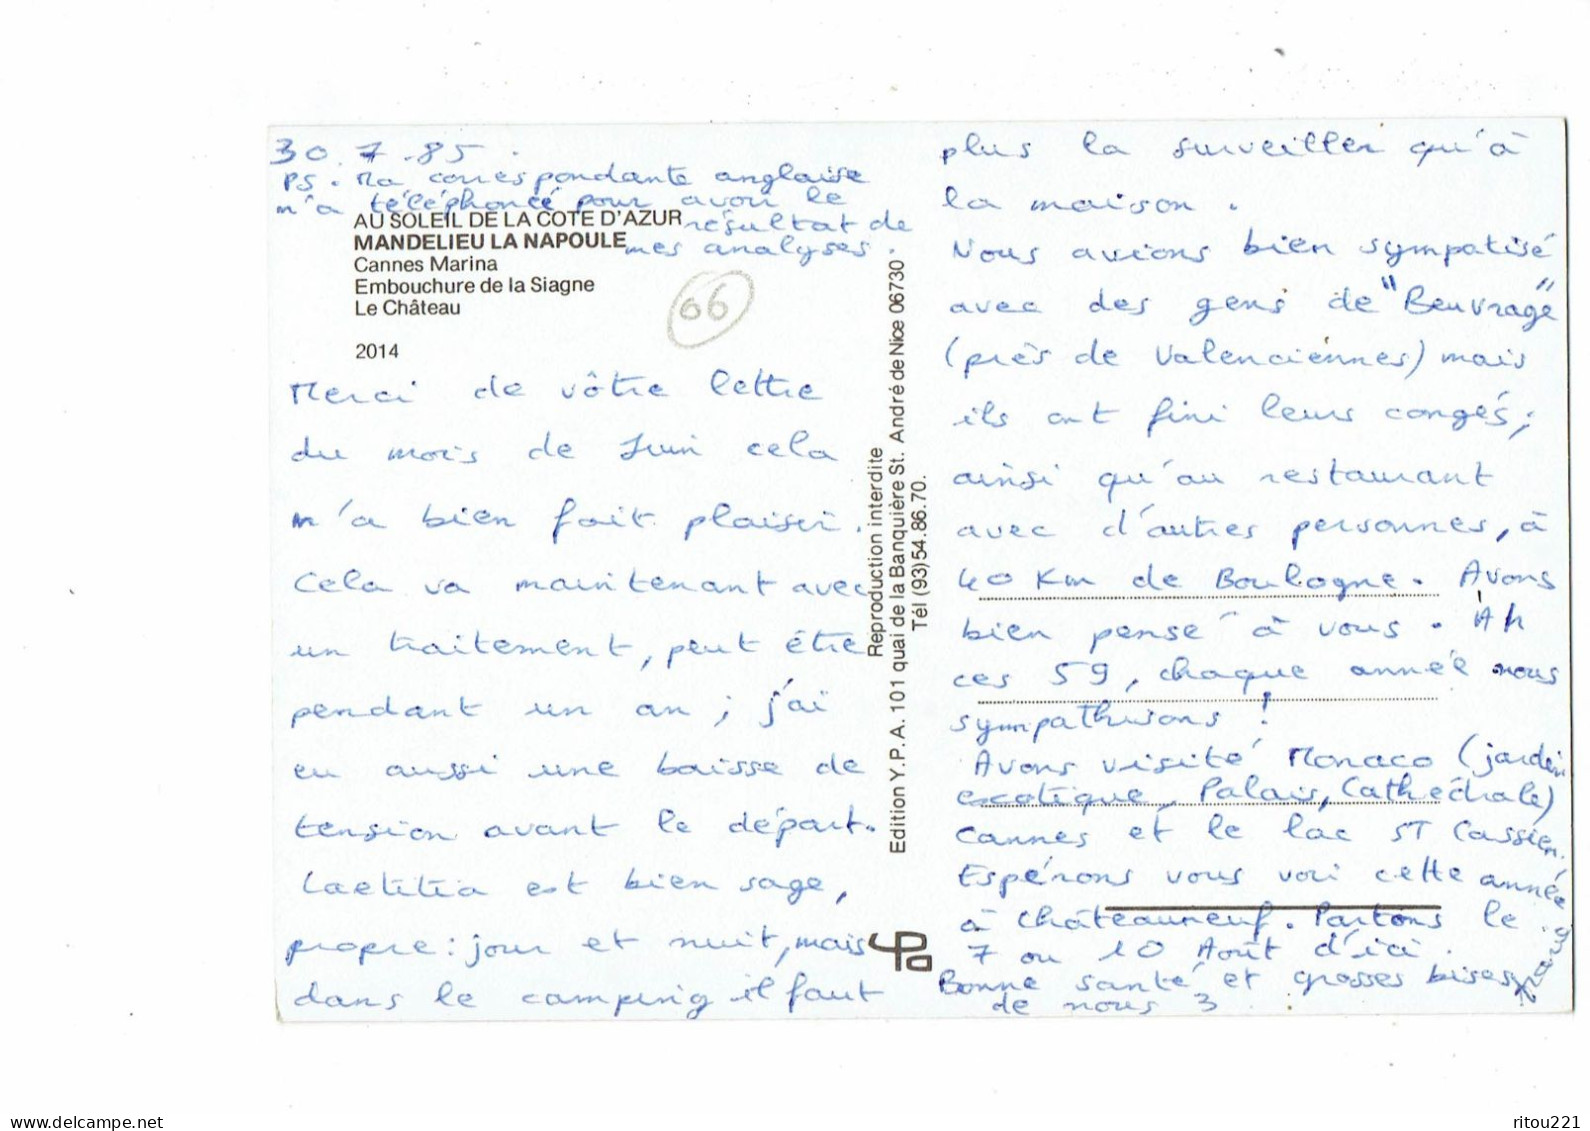 30.7.85.
PS. Ma correspondante anglaise
m'a téléphoné pour avoir le
résultat de
mes analyses.
AU SOLEIL DE LA COTE D'AZUR
MANDELIEU LA NAPOULE
Cannes Marina
Embouchure de la Siagne
Le Château
2014
66
Merci de vôtre lettre
du mois de Juin cela
m'a bien fait plaisir.
Cela va maintenant avec
un traitement, peut être
pendant un an ; j'ai
eu aussi une baisse de
tension avant le départ.
Laetitia est bien sage,
propre : jour et nuit, mais
dans le camping il faut
Reproduction interdite
Edition Y.P.A. 101 quai de la Banquière St. André de Nice 06730
Tél (93) 54.86.70.
YPA
plus la surveiller qu'à
la maison.
Nous avions bien sympatisé
avec des gens de "Beuvrage"
(près de Valenciennes) mais
ils ont fini leurs congés ;
ainsi qu'au restaurant
avec d'autres personnes, à
40 Km de Boulogne. Avons
bien pensé à vous. Ah
ces 59, chaque année nous
sympathisons !
Avons visité Monaco (jardin
exotique, Palais, Cathédrale)
Cannes et le lac ST Cassien.
Espérons vous voir cette année
à Châteauneuf. Partons le
7 ou 10 Août d'ici.
Bonne santé et grosses bises
de nous 3
www.delcampe.net
ritou221